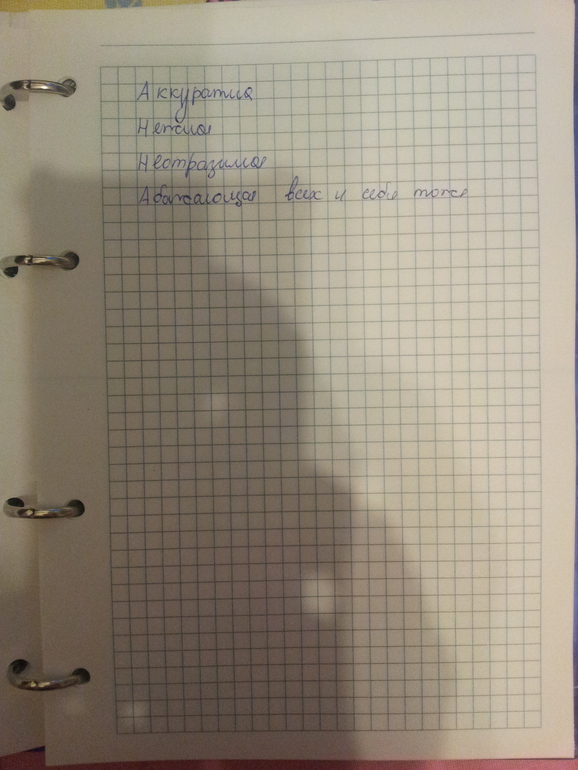 Аккуратна
Нежная
Неотразимая
Абажающая всех и себя тоже